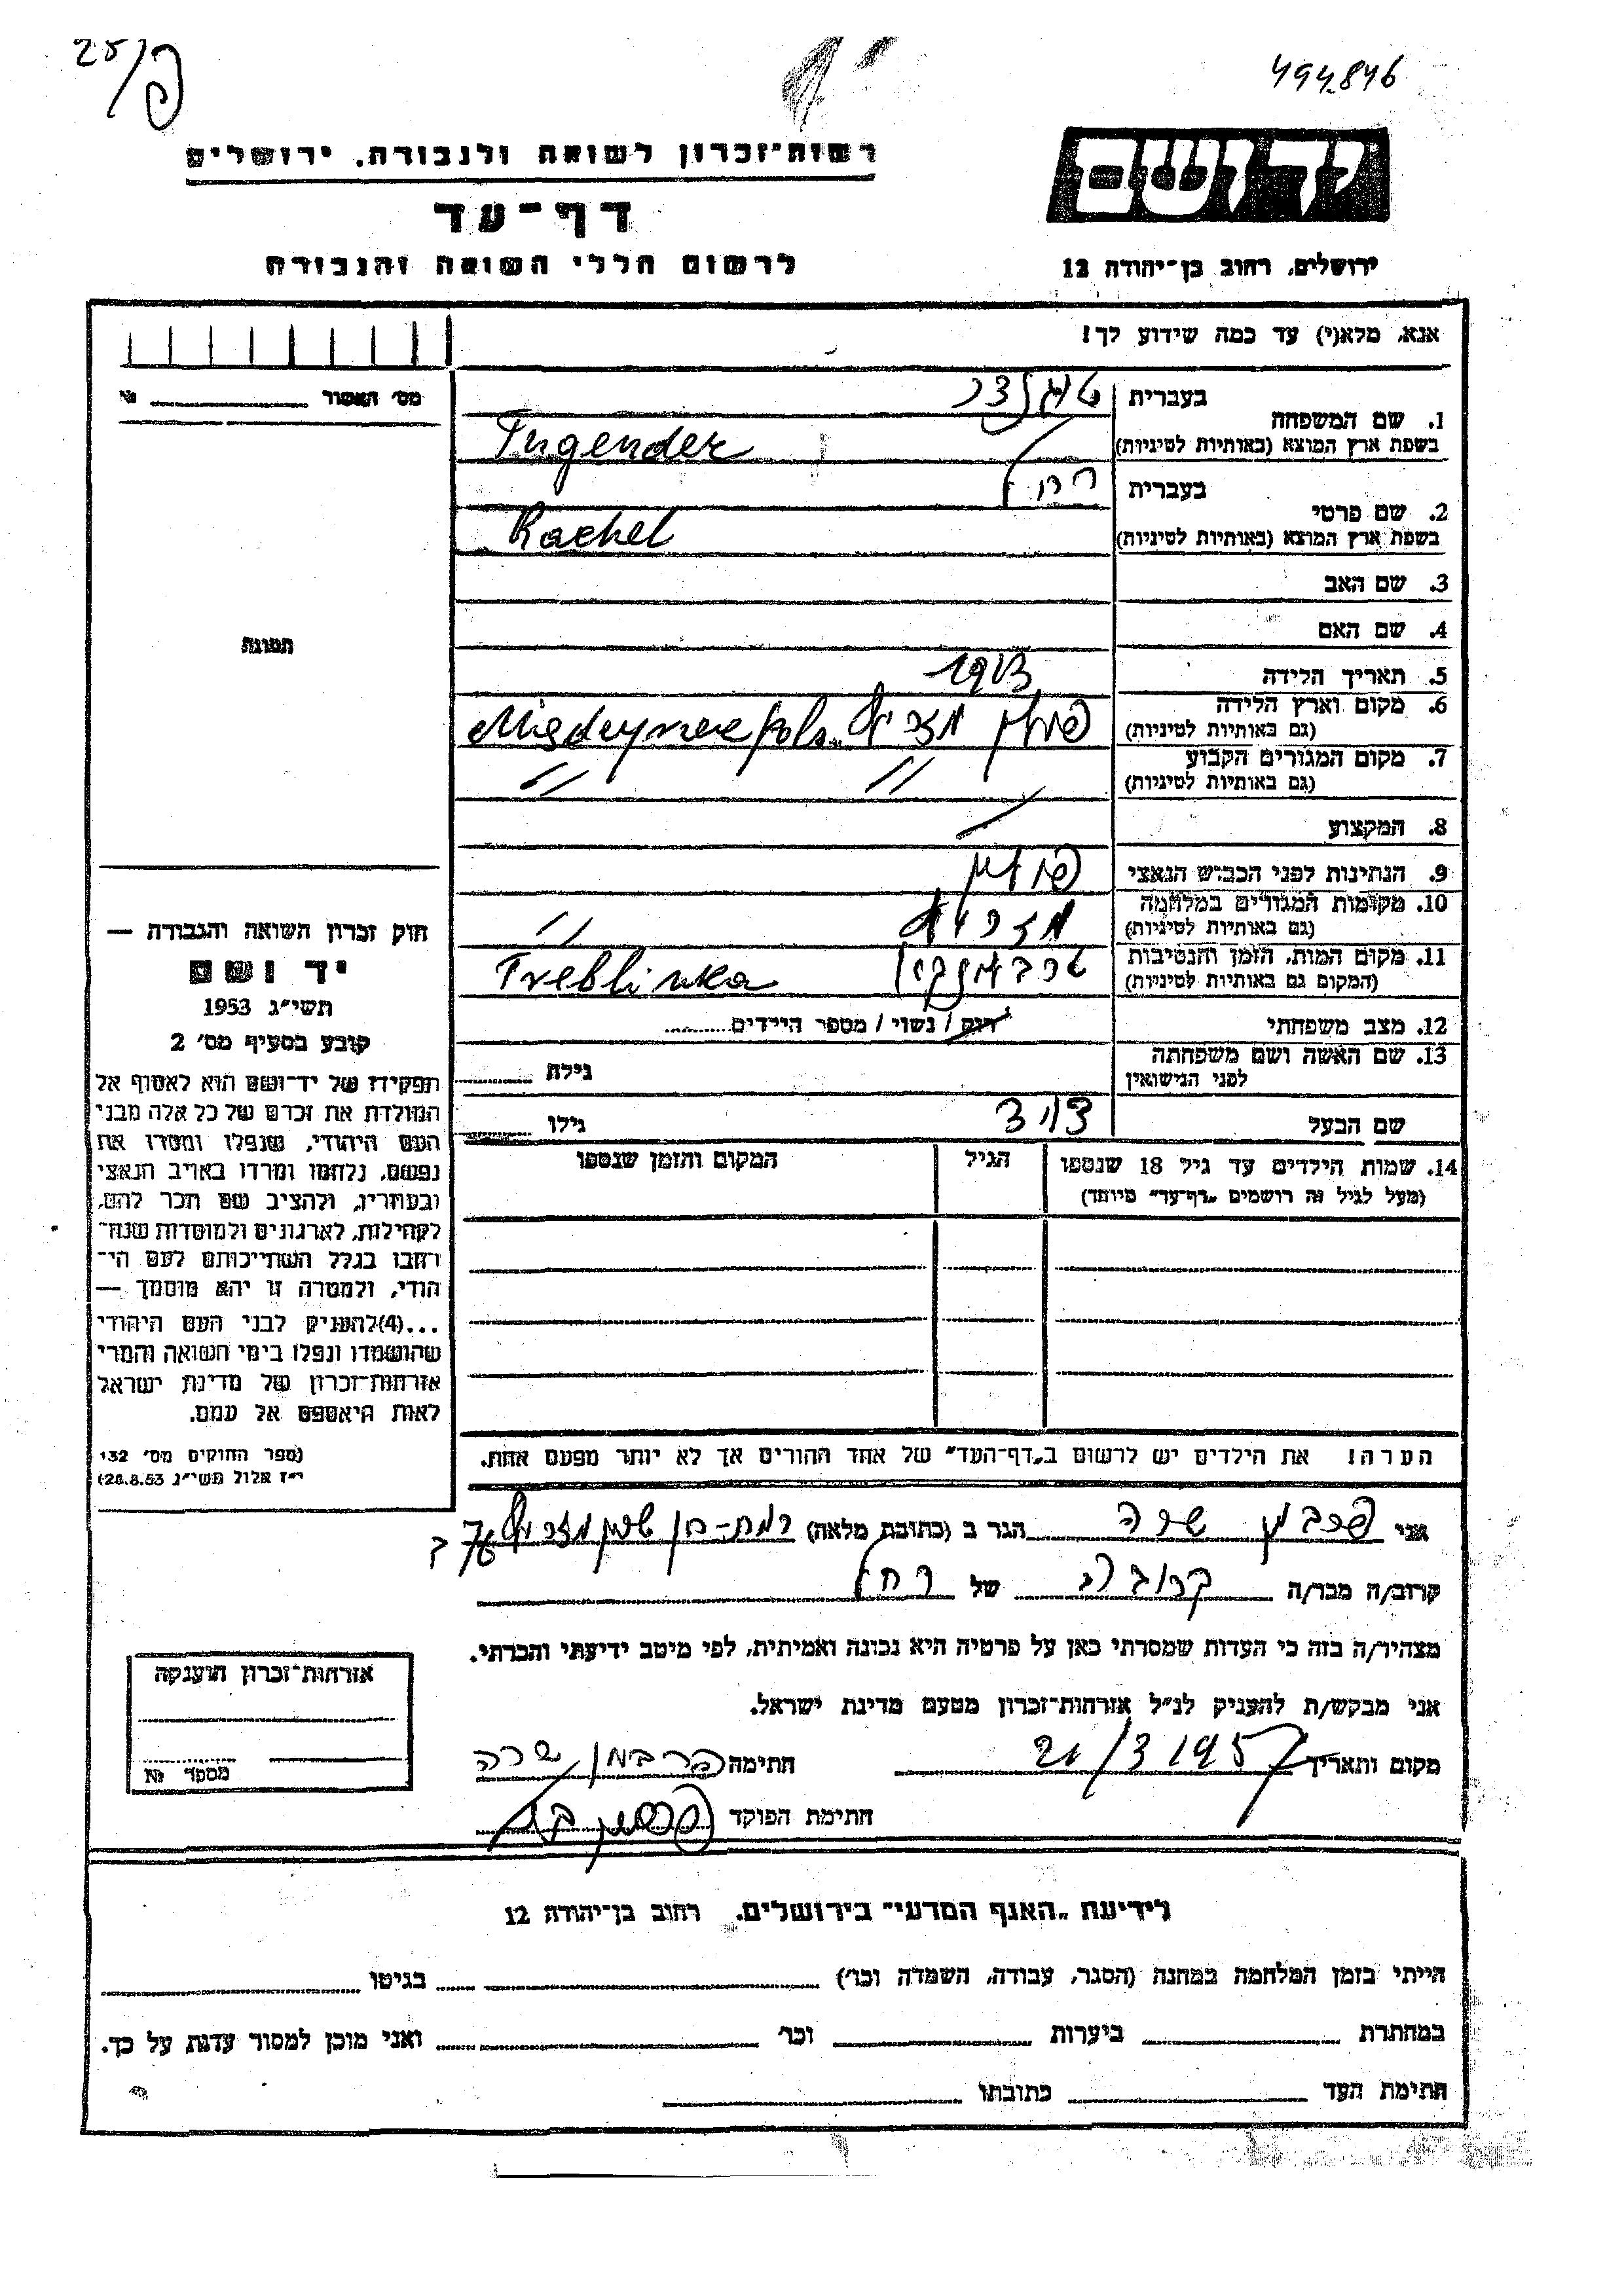 25/פ
494.846
רשות־זכרון לשואה ולגבורה, ירושלים
יד ושם
דף־עד
לרשום חללי השואה והגבורה
ירושלים, רחוב בן־יהודה 12
אנא, מלא(י) עד כמה שידוע לך!
מס׳ האשור № 
1. שם המשפחה
בעברית
בשפת ארץ המוצא (באותיות לטיניות)
Tugender
2. שם פרטי
בעברית רחל
בשפת ארץ המוצא (באותיות לטיניות)
Rachel
3. שם האב
4. שם האם
תמונה
5. תאריך הלידה
6. מקום וארץ הלידה
(גם באותיות לטיניות)
פולין
7. מקום המגורים הקבוע
(גם באותיות לטיניות)
" "
8. המקצוע
9. הנתינות לפני הכבוש הנאצי
10. מקומות המגורים במלחמה
(גם באותיות לטיניות)
"
11. מקום המות, הזמן והנסיבות
(המקום גם באותיות לטיניות)
Treblinka
12. מצב משפחתי רוק / נשוי / מספר הילדים
13. שם האשה ושם משפחתה
לפני הנישואין
גילה
שם הבעל
גילו
14. שמות הילדים עד גיל 18 שנספו
(מעל לגיל זה רושמים „דף־עד״ מיוחד)
הגיל
המקום והזמן שנספו
חוק זכרון השואה והגבורה —
יד ושם
תשי״ג 1953
קובע בסעיף מס׳ 2
תפקידו של יד־ושם הוא לאסוף אל
המולדת את זכרם של כל אלה מבני
העם היהודי, שנפלו ומסרו את
נפשם, נלחמו ומרדו באויב הנאצי
ובעוזריו, ולהציב שם וזכר להם,
לקהילות, לארגונים ולמוסדות שנח־
רבו בגלל השתייכותם לעם הי־
הודי, ולמטרה זו יהא מוסמך —
...(4)להעניק לבני העם היהודי
שהושמדו ונפלו בימי השואה והמרי
אזרחות־זכרון של מדינת ישראל
לאות היאספם אל עמם.
(ספר החוקים מס׳ 132
י״ז אלול תשי״ג 28.8.53)
הערה! את הילדים יש לרשום ב„דף־העד״ של אחד ההורים אך לא יותר מפעם אחת.
אני פרבמן שרה הגר ב (כתובת מלאה) רמת־גן
קרוב/ה מכר/ה קרובה של רחל
מצהיר/ה בזה כי העדות שמסרתי כאן על פרטיה היא נכונה ואמיתית, לפי מיטב ידיעתי והכרתי.
אני מבקש/ת להעניק לנ״ל אזרחות־זכרון מטעם מדינת ישראל.
מקום ותאריך 21/3 1957 חתימה פרבמן שרה
חתימת הפוקד
אזרחות־זכרון הוענקה
מספר №
לידיעת „האגף המדעי״ בירושלים, רחוב בן־יהודה 12
הייתי בזמן המלחמה במחנה (הסגר, עבודה, השמדה וכו׳) בגיטו
במחתרת ביערות וכו׳ ואני מוכן למסור עדות על כך.
חתימת העד כתובתו